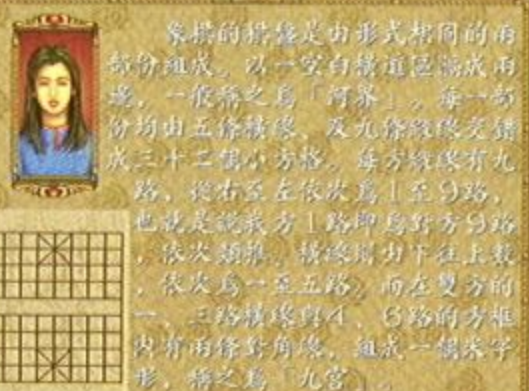 象棋的棋盤是由形式相同的兩
部份組成。以一空白橫道區隔成兩
邊，一般稱之爲「河界」。每一部
份均由五條橫線、及九條縱線交錯
成三十二個小方格。每方縱線有九
路，從右至左依次爲1至9路，
也就是說我方1路即爲對方9路
，依次類推。橫線則由下往上數
，依次爲一至五路。而在雙方的
一、三路橫線與4、6路的方框
內有兩條對角線，組成一個米字
形，稱之爲「九宮」。